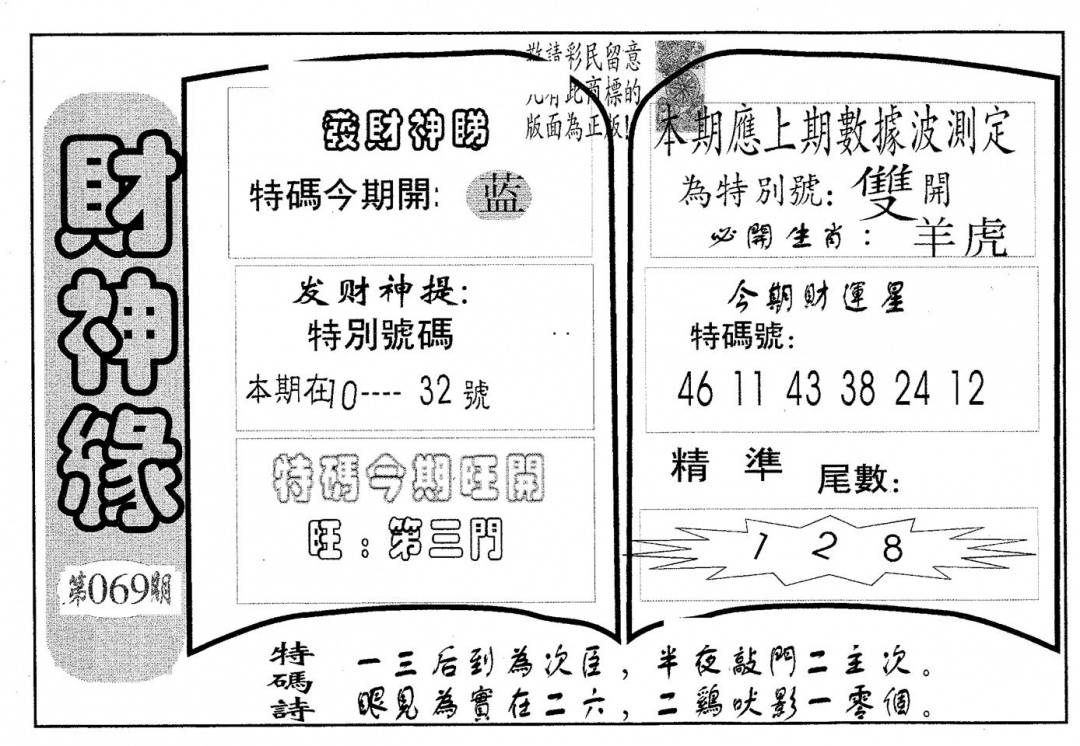 財神緣
第069期
敬請彩民留意
凡有此商標的
版面為正版!
發財神睇
特碼今期開: 蓝
发财神提:
特別號碼
本期在10---- 32號
特碼今期旺開
旺: 第三門
本期應上期數據波測定
為特別號: 雙開
必開生肖: 羊虎
今期財運星
特碼號:
46 11 43 38 24 12
精準 尾數:
1 2 8
特碼詩
一三后到為次臣, 半夜敲門二主次。
眼見為實在二六, 二鷄吠影一零個。